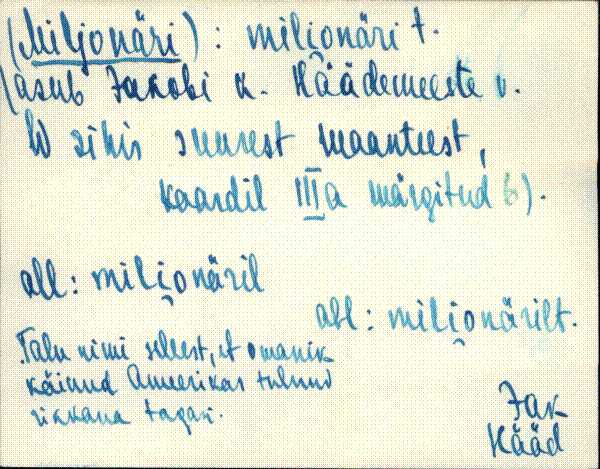 (Miljonäri) : mili̯onäri t.
(asub Jakobi k. Häädemeeste v.
W sihis suurest maanteest,
kaardil IIIa märgitud 6).
all: mili̯onäril
abl: mili̯onärilt.
Talu nimi sellest, et omanik
käinud Ameerikas tulnud
rikkana tagasi.
Jak
Hääd